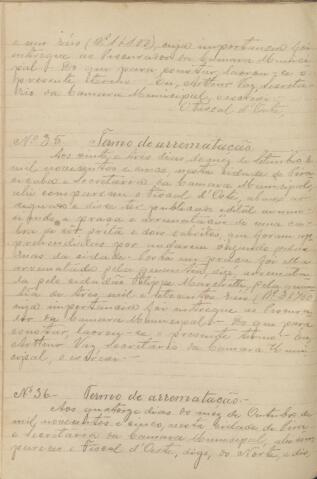 e um réis (Rs 1$102), cuja importancia foi
entregue ao Procurador da Camara Munici-
pal. Do que para constar, lavrou-se o
presente termo. Eu, Arthur Vaz, secreta-
rio da Camara Municipal, escrevi.
O Fiscal d'Oeste,
Nº 35 Termo de arrematação
Aos vinte e tres dias do mez de Setembro de
mil novecentos e cinco, nesta cidade de Pira-
cicaba e Secretaria da Camara Municipal,
ahi compareceu o Fiscal d'Oeste, abaixo as-
signado e disse ter publicado edital
a praça e arrematação de uma ca-
bra preta e dois cabritos, que foram ap-
prehendidos por vagarem
ruas da cidade. Posta em praça foi
arrematada pela quantia, digo, arremata-
da pelo cidadão Felippe pela quan-
tia de tres mil e setecentos réis,
cuja importancia foi entregue ao Procura-
dor da Camara Municipal. Do que para
constar, lavrou-se o presente termo. Eu,
Arthur Vaz, secretario da Camara Muni-
cipal, o escrevi.
Nº 36 - Termo de arrematação -
Aos quatorze dias do mez de Outubro de
mil novecentos e cinco, nesta cidade de Pira-
e secretaria da Camara Municipal, ahi com-
pareceu o Fiscal d'Oeste, digo, do Norte, e dis-